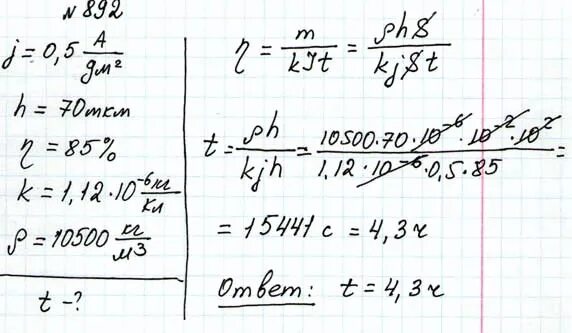 №892
j = 0,5 А/дм²
h = 70мкм
η = 85%
k = 1,12·10⁻⁶ кг/Кл
ρ = 10500 кг/м3
t - ?
η = m/kIt = ρhS/kjSt
t = ρh/kjh = 10500·70·10⁻⁶·10⁻²·10²/1,12·10⁻⁶·0,5·85 =
= 15441 с = 4,3ч
Ответ: t = 4,3ч